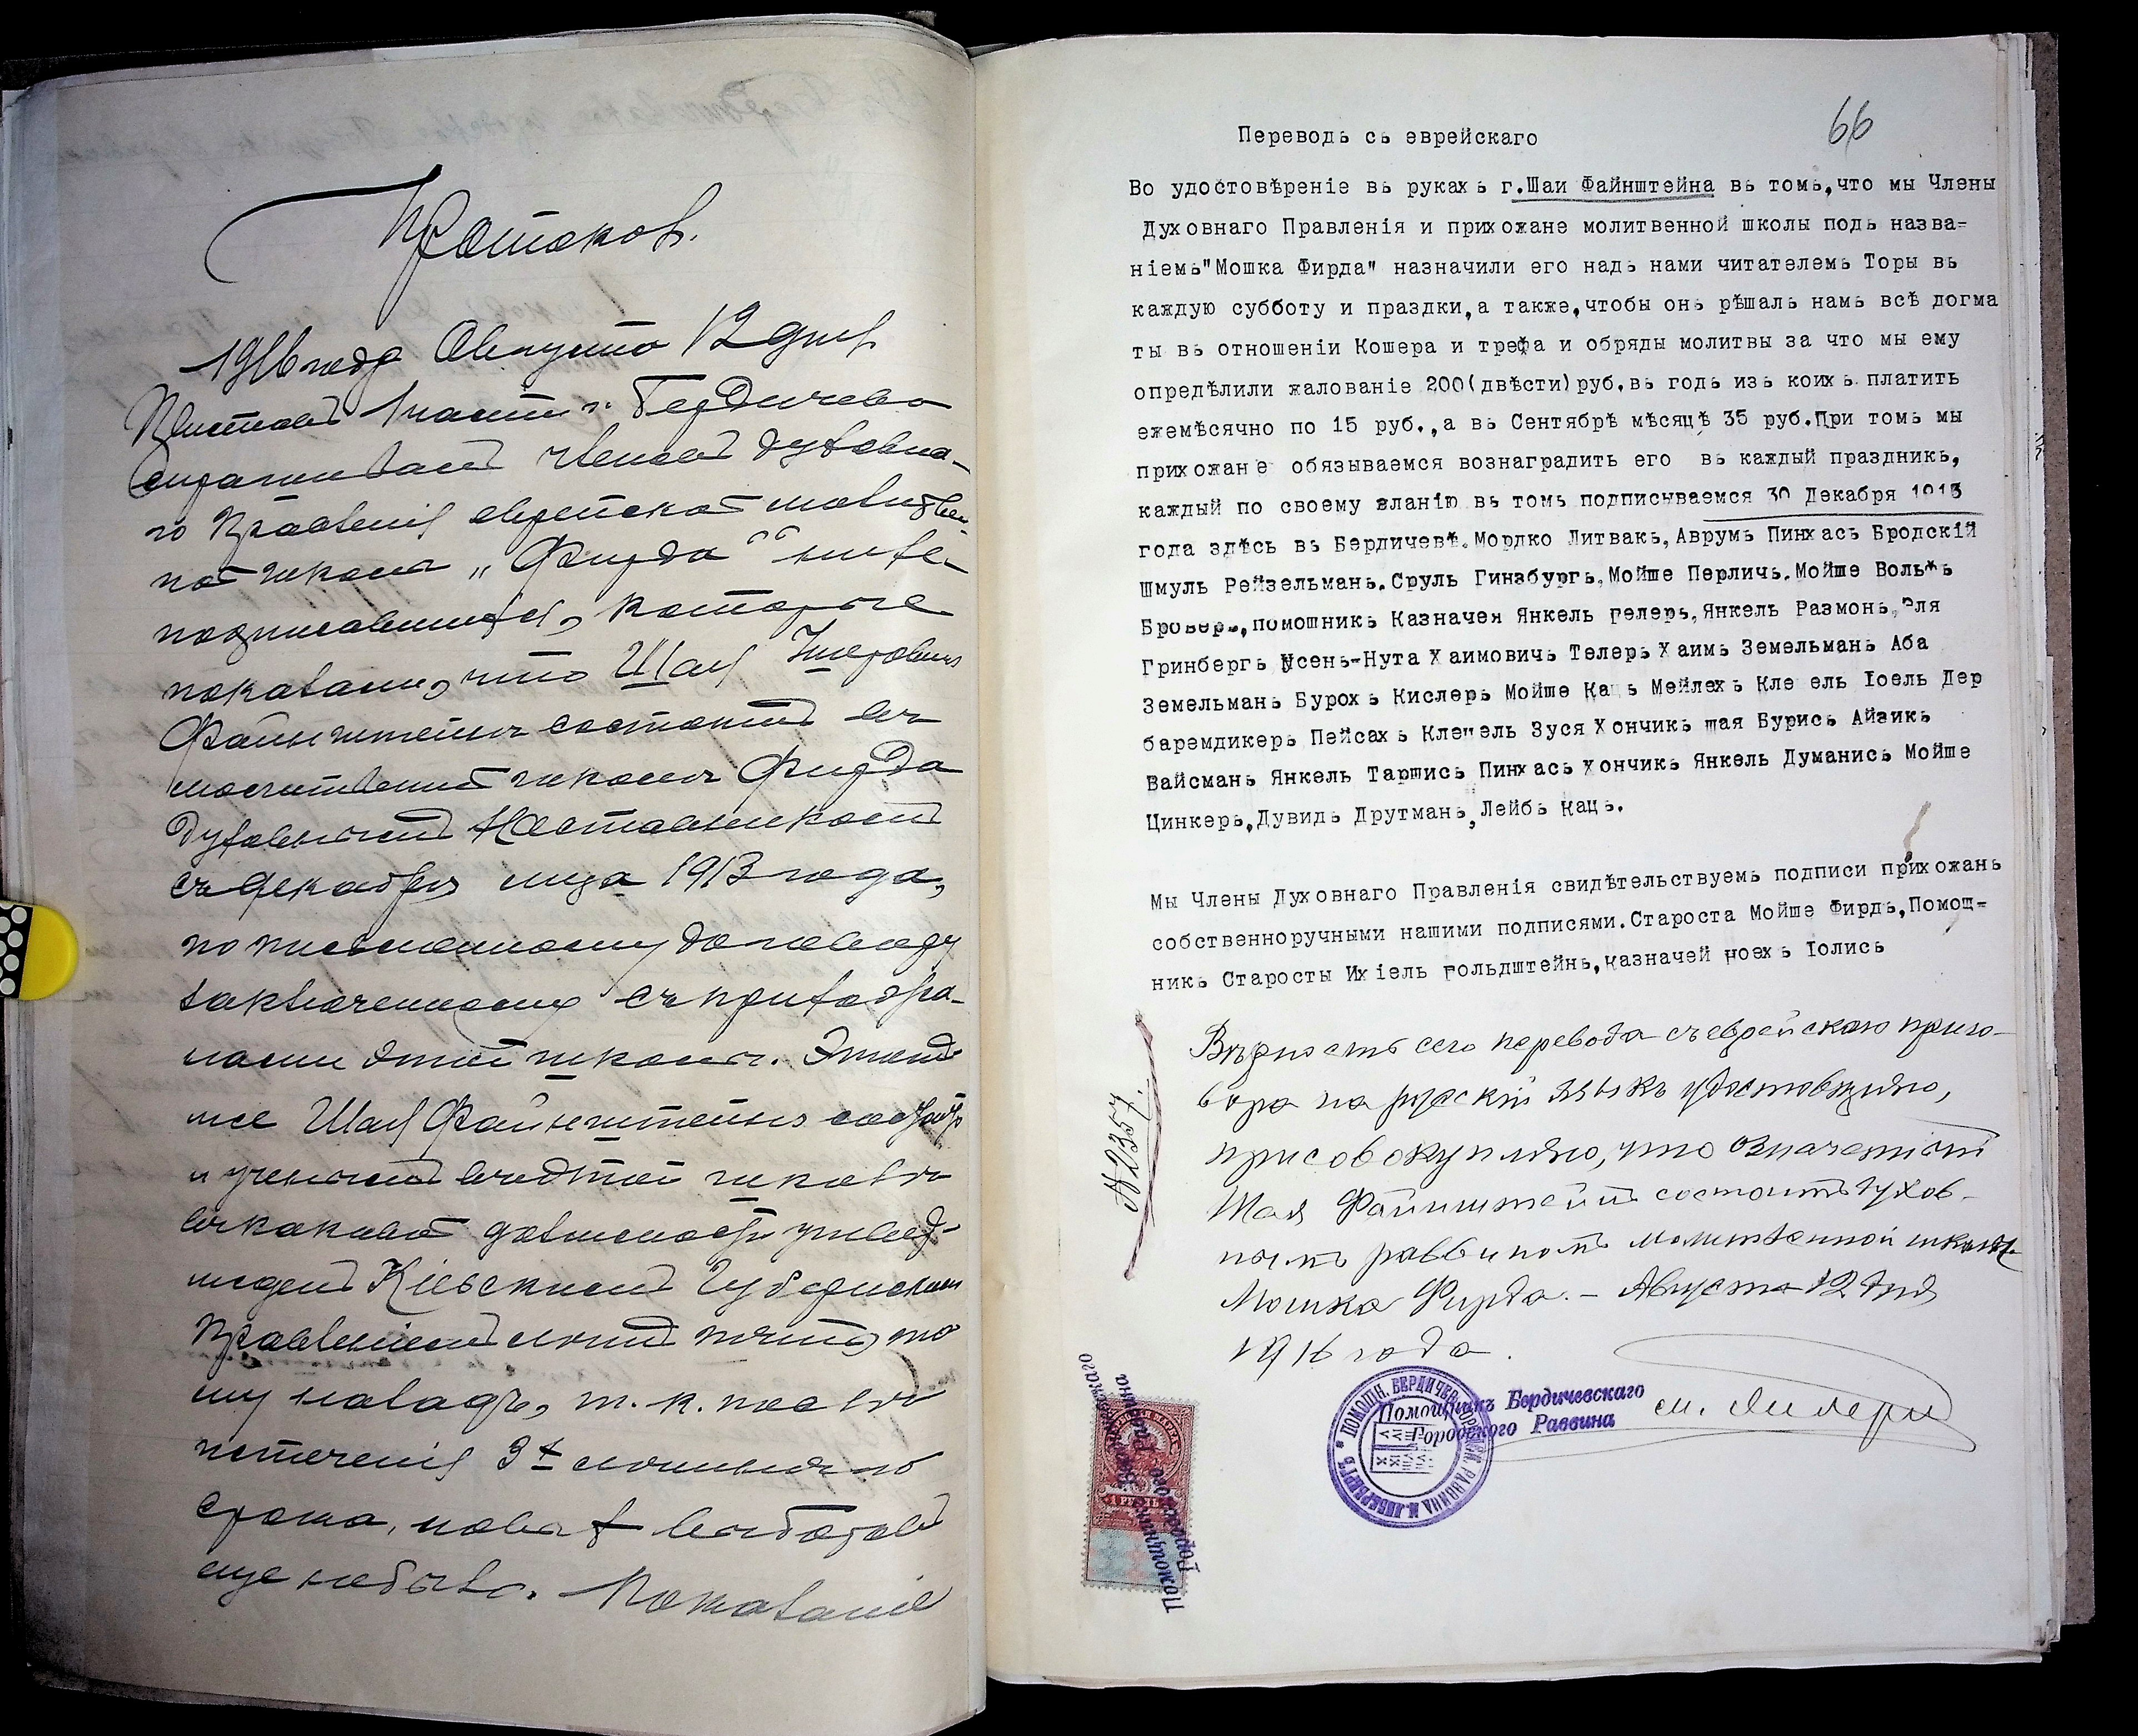 Протоколъ.
1916 года Августа 12 дня
Приставъ 1 части г. Бердичева
спрашивалъ членовъ духовна-
го Правленія еврейской молитвен-
ной школы „Фирда“ ниже-
подписавшихся, которые
показали, что Шая
Файнштейнъ состоитъ въ
молитвенной школѣ Фирда
духовнымъ
съ Декабря м-ца 1913 года,
по письменному договору
заключенному съ прихожа-
нами этой школы. Этотъ
же Шая Файнштейнъ
и ученымъ въ этой школѣ
въ каковой должности утверж-
денъ Кіевскимъ Губернскимъ
Правленіемъ тому
му назадъ, т. к. послѣ
истеченія 3х
срока, новыхъ выборовъ
еще не было. Показаніе
66
Переводъ съ еврейскаго
Во удостовѣреніе въ рукахъ г.Шаи Файнштейна въ томъ,что мы Члены
Духовнаго Правленія и прихожане молитвенной школы подъ назва=
ніемъ"Мошка Фирда" назначили его надъ нами читателемъ Торы въ
каждую субботу и праздки,а также,чтобы онъ рѣшалъ намъ всѣ догма
ты въ отношеніи Кошера и трефа и обряды молитвы за что мы ему
опредѣлили жалованіе 200(двѣсти)руб.въ годъ изъ коихъ платить
ежемѣсячно по 15 руб.,а въ Сентябрѣ мѣсяцѣ 35 руб.При томъ мы
прихожане обязываемся вознаградить его въ каждый праздникъ,
каждый по своему вланію въ томъ подписываемся 30 Декабря 1913
года здѣсь въ Бердичевѣ.Мордко Литвакъ,Аврумъ Пинхасъ Бродскій
Шмуль Рейзельманъ.Сруль Гинзбургъ,Мойше Перличъ.Мойше Вольѣъ
Броверъ,помошникъ Казначея Янкель Гелеръ,Янкель Размонъ,Эля
Гринбергъ Усенъ-Нута Хаимовичъ Телеръ Хаимъ Земельманъ Аба
Земельманъ Бурохъ Кислеръ Мойше Кацъ Мейлехъ Кле ель Іоель Дер
баремдикеръ Пейсахъ Клепель Зуся Хончикъ шая Бурисъ Айзикъ
Вайсманъ Янкель Таршисъ Пинхасъ Хончикъ Янкель Думанисъ Мойше
Цинкеръ,Дувидъ Друтманъ,Лейбъ Кацъ.
Мы Члены Духовнаго Правленія свидѣтельствуемъ подписи прихожанъ
собственноручными нашими подписями.Староста Мойше Фирдъ,Помощ=
никъ Старосты Ихіель Гольдштейнъ,Казначей Ноехъ Іолисъ
Вѣрность сего перевода съ еврейскаго приго-
вора на русскій языкъ удостовѣряю,
присовокупляю, что означенный
Шая Файнштейнъ состоитъ духов-
нымъ раввиномъ молитвенной школы
Мошка Фирда. – Августа 12 дня
1916 года.
№ 2357.
Помощникъ Бердичевскаго
Городского Раввина
ПОМОЩН. БЕРДИЧЕВ. ГОРОДСК. РАВВИНА
1 РУБЛЬ
Помощникъ Бердичевскаго
Городского Раввина